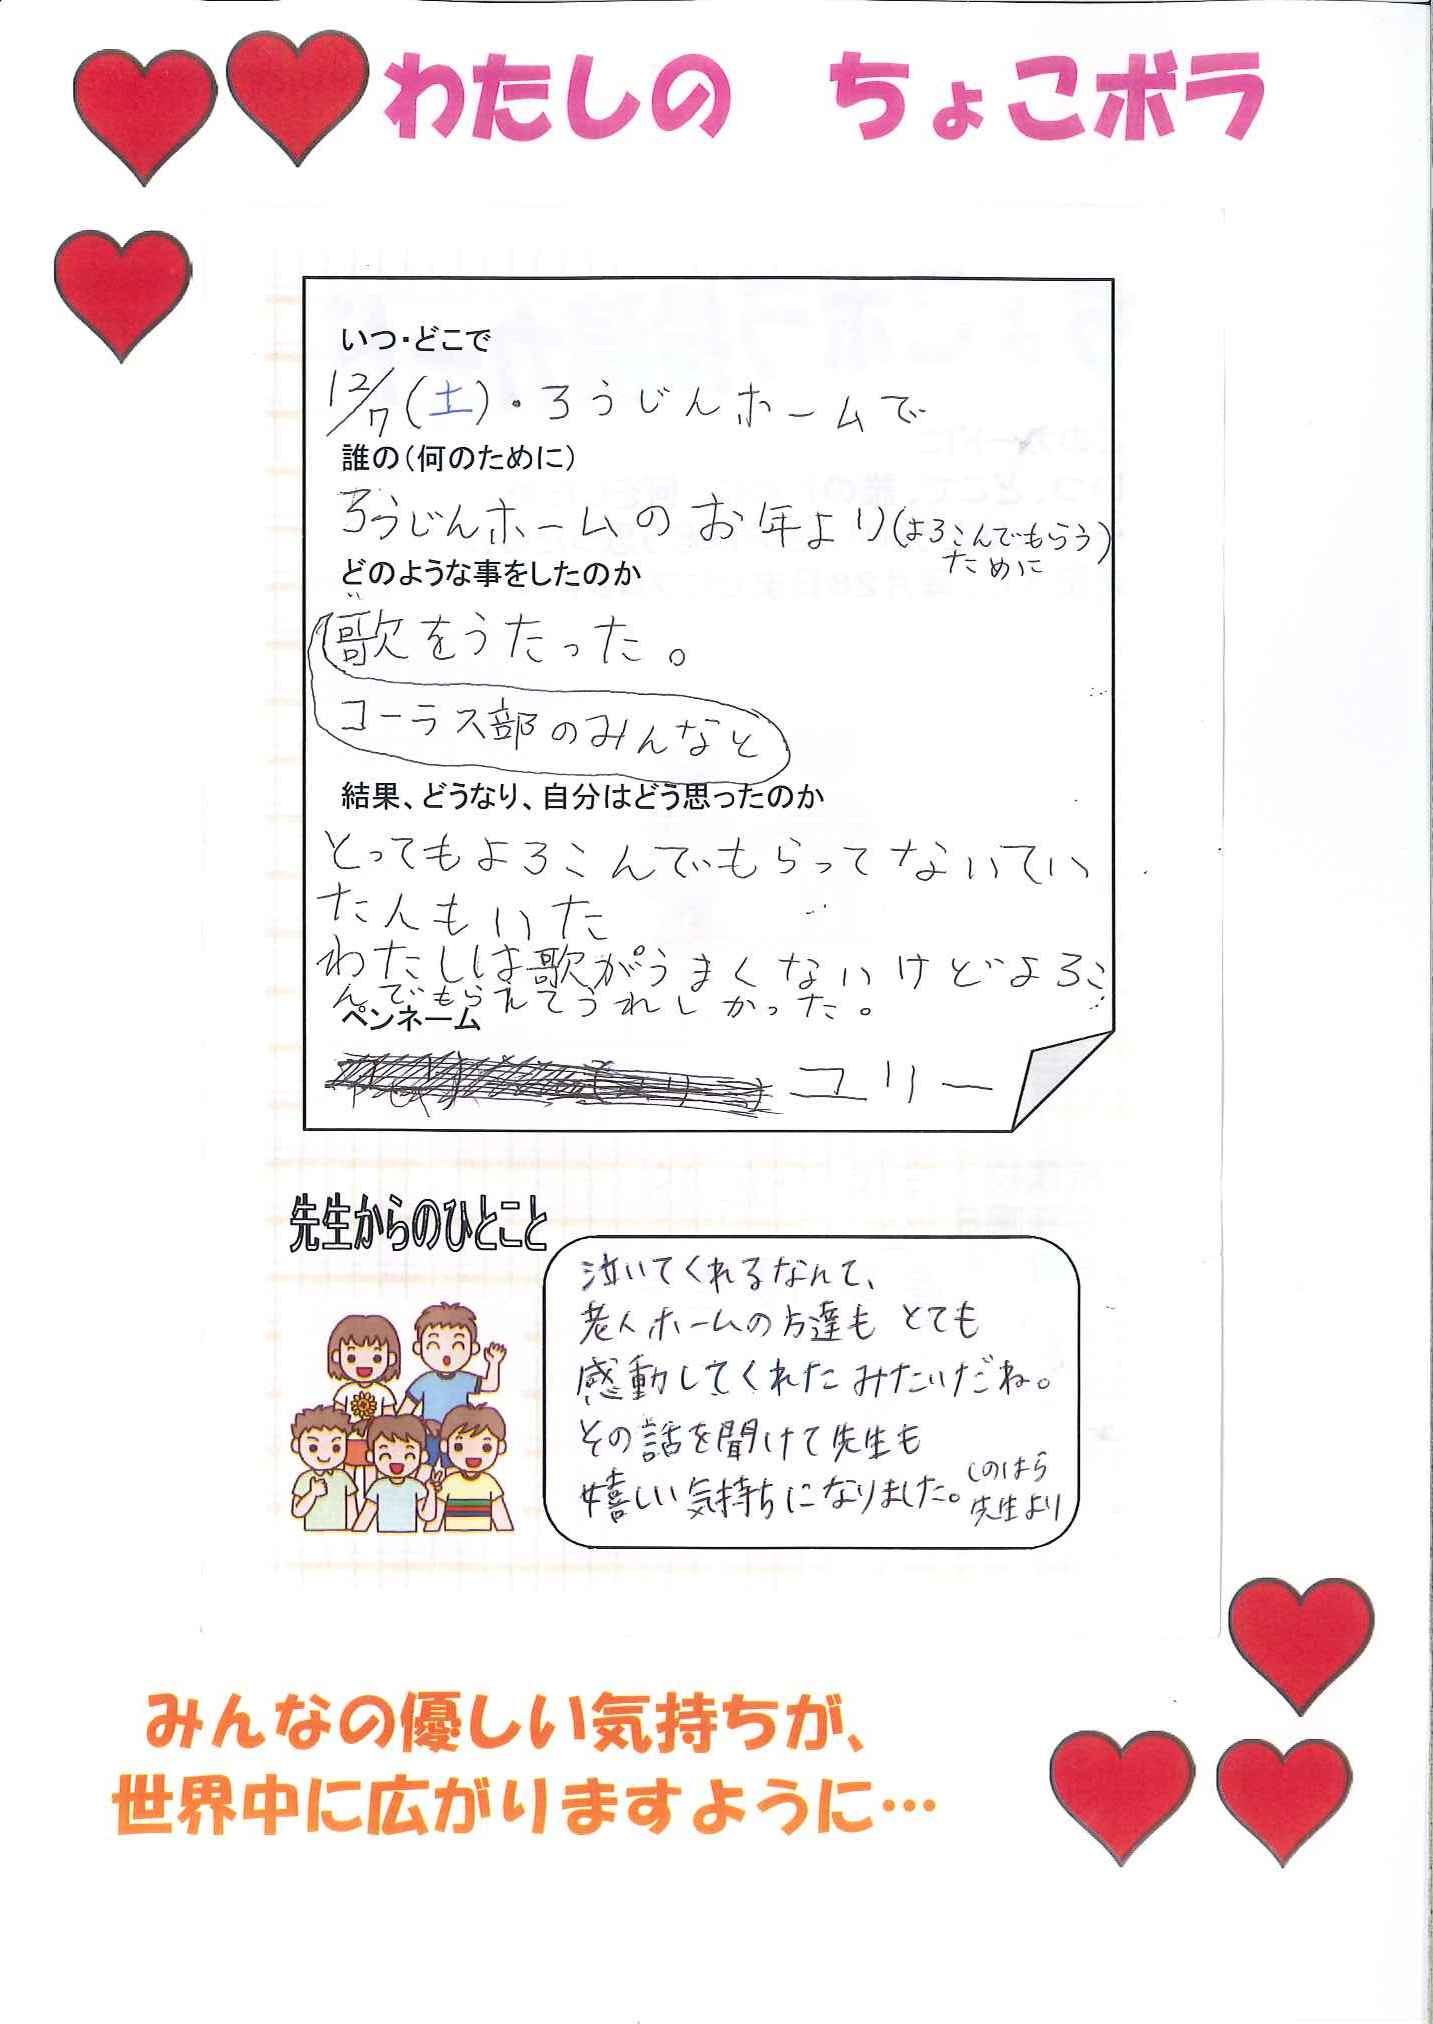 わたしの ちょこボラ
いつ・どこで
12/7(土)・ろうじんホームで
誰の(何のために)
ろうじんホームのお年より(よろこんでもらう)
ために
どのような事をしたのか
歌をうたった。
コーラス部のみんなと
結果、どうなり、自分はどう思ったのか
とってもよろこんでもらってないてい
た人もいた
わたしは歌がうまくないけどよろこ
んでもらえてうれしかった。
ペンネーム
ユリー
先生からのひとこと
泣いてくれるなんて、
老人ホームの方達も とても
感動してくれたみたいだね。
その話を聞けて先生も
嬉しい気持ちになりました。しのはら
先生より
みんなの優しい気持ちが、
世界中に広がりますように…